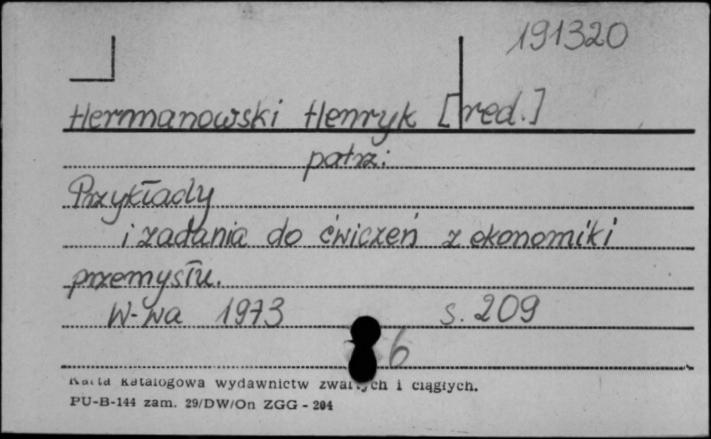 191320
Hermanowski Henryk [red.]
patrz:
Przykłady
i zadania do ćwiczeń z ekonomiki
przemysłu.
W-wa 1973 s. 209
6
Karta katalogowa wydawnictw zwartych i ciągłych.
PU-B-144 zam. 29/DW/On ZGG - 204